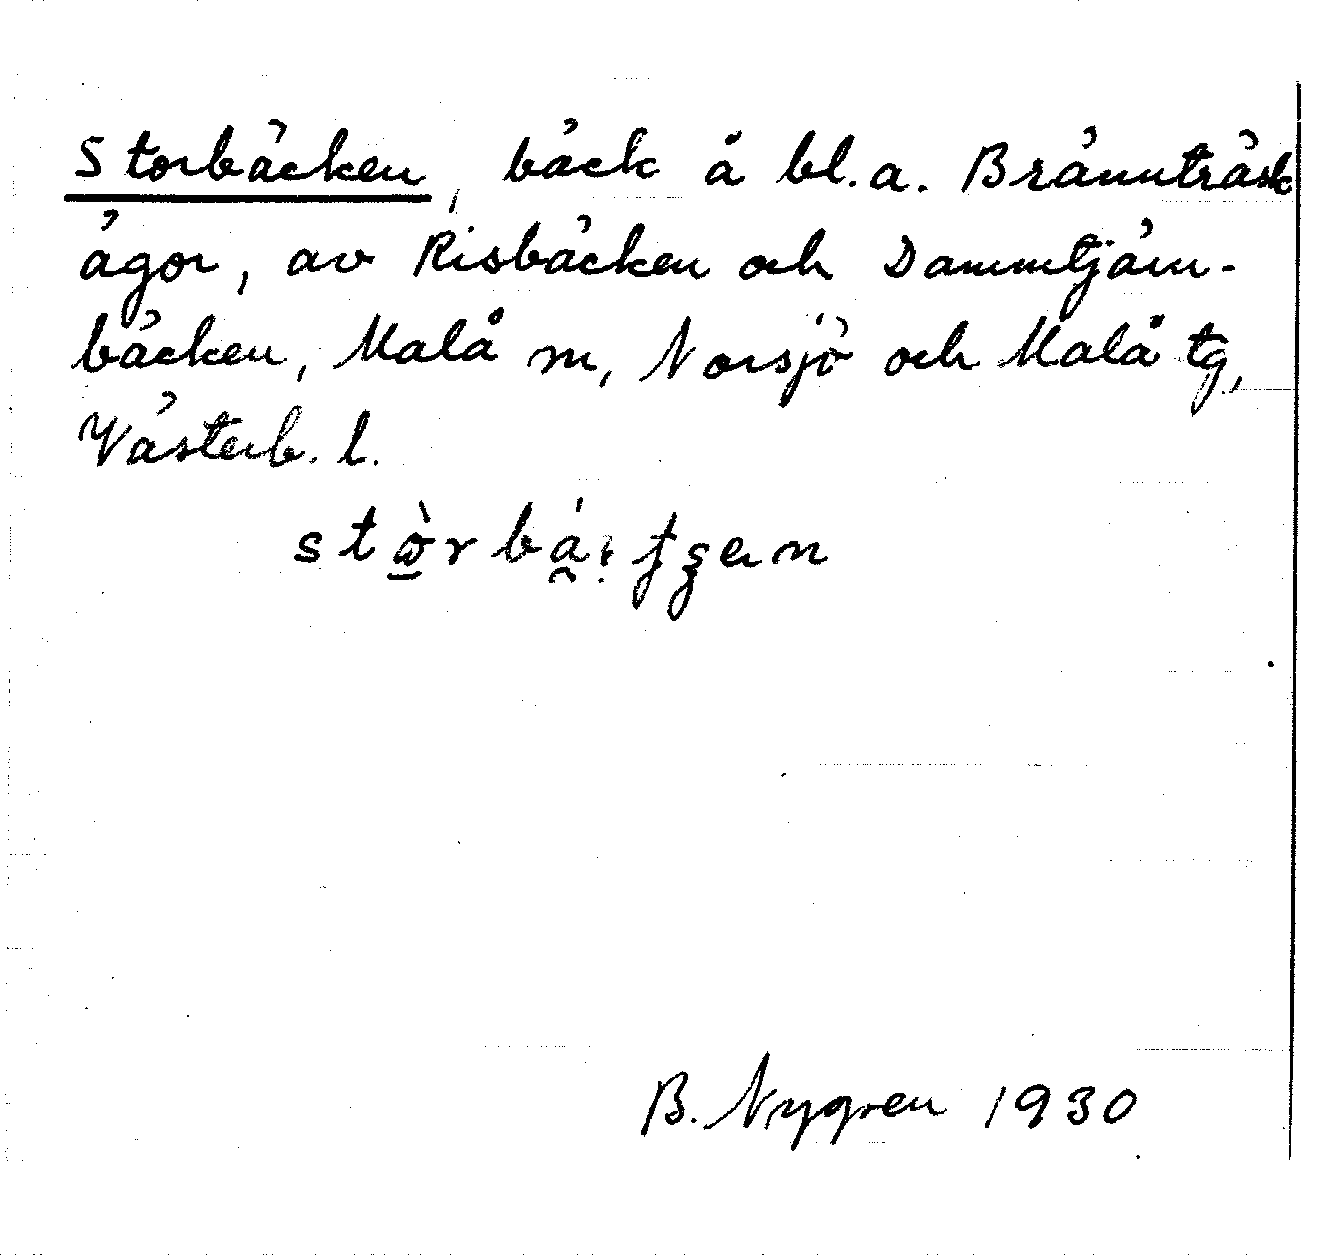 Storbäcken, bäck å bl.a. Brännträsk
ägor, av Risbäcken och Dammtjärn-
bäcken, Malå sn, Norsjö och Malå tg,
Västerb. l.
B. Nygren 1930